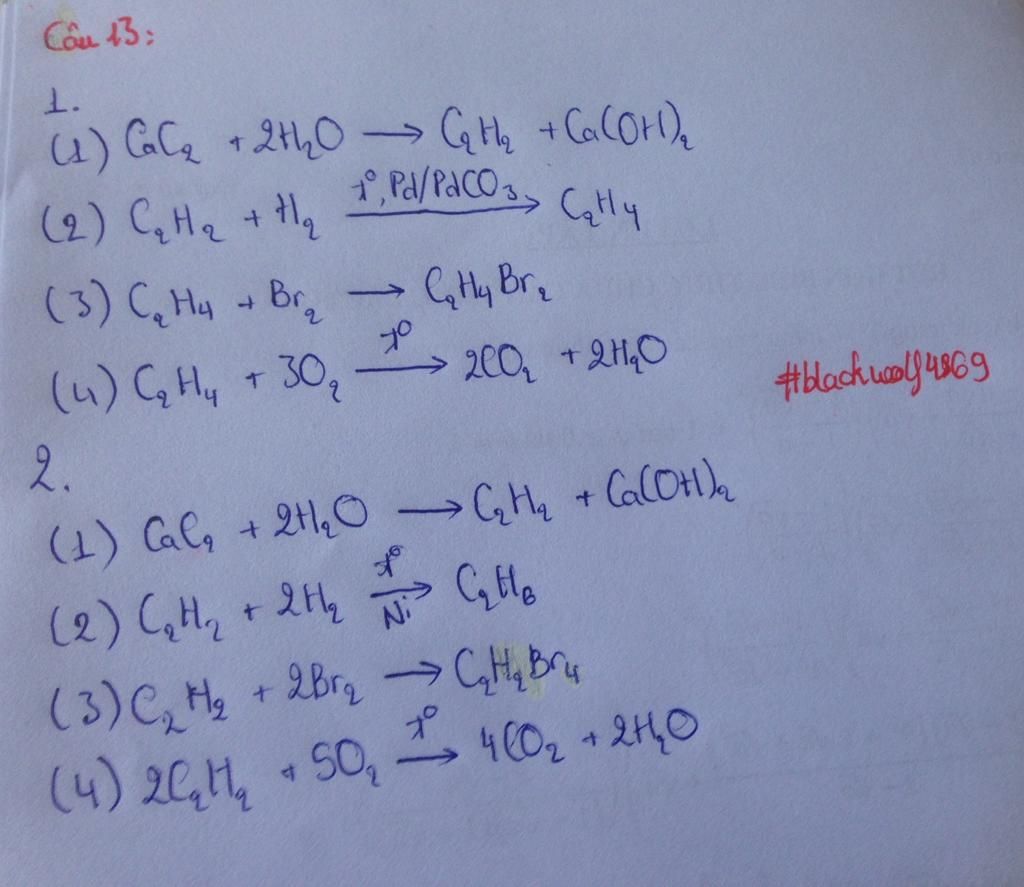 Câu 13:
1.
(1) CaC₂ + 2H₂O → C₂H₂ + Ca(OH)₂
(2) C₂H₂ + H₂ —t°, Pd/PdCO₃→ C₂H₄
(3) C₂H₄ + Br₂ → C₂H₄Br₂
(4) C₂H₄ + 3O₂ —t°→ 2CO₂ + 2H₂O
#blackwolf4869
2.
(1) CaC₂ + 2H₂O → C₂H₂ + Ca(OH)₂
(2) C₂H₂ + 2H₂ —t°, Ni→ C₂H₆
(3) C₂H₂ + 2Br₂ → C₂H₂Br₄
(4) 2C₂H₂ + 5O₂ —t°→ 4CO₂ + 2H₂O